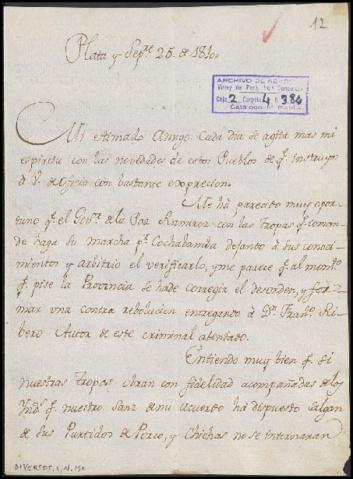 12
Plata y Sepᵉ 26 de 1810.
ARCHIVO DE
Caja 2 Carpeta 4 n 384
Mi estimado Amigo: Cada dia se agita mas mi
espiritu con las novedades de estos Pueblos de qᵉ instruyo
à V. de oficio con bastante exprecion.
Me ha parecido muy opor-
tuno qᵉ el Govʳ de la Paz Ramirez con las tropas qᵉ coman-
de haga su Marcha pʳ Cochabamba dejando à sus conoci-
mientos y arbitrio el verificarlo, y me parece qᵉ al momᵗᵒ
qᵉ pise la Provincia se hade corregir el desorden, y for-
mar una contra rebolucion entregando à Dⁿ Franᶜᵒ Ri-
bero Autor de este criminal atentado.
Entiendo muy bien qᵉ si
nuestras Tropas obran con fidelidad acompañadas de los
Indˢ qᵉ nuestro Sanz de mi acuerdo ha dispuesto salgan
de sus Partidos de Porco, y Chichas no se internaran
DIVERSOS, 2, N.